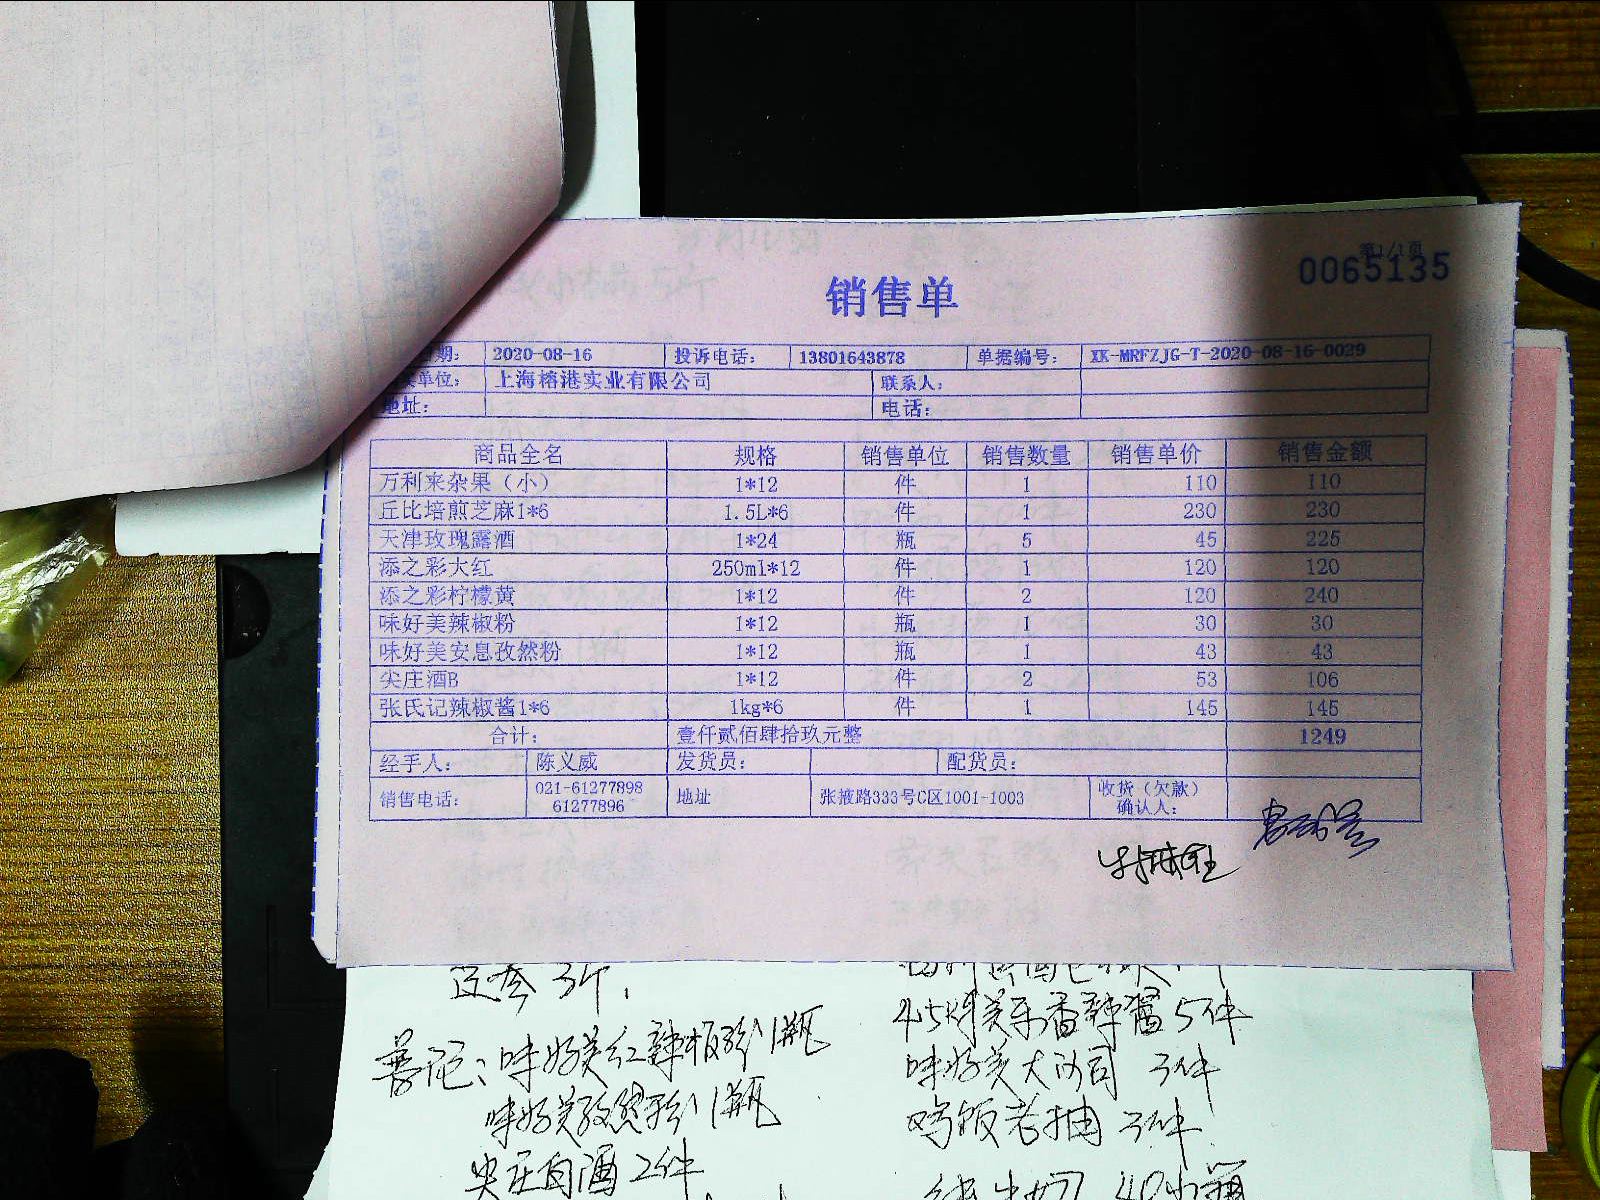 第1/1页
0065135
销售单
期： 2020-08-16 投诉电话： 13801643878 单据编号： XK-MRFZJG-T-2020-08-16-0029
单位： 上海榕港实业有限公司 联系人：
地址： 电话：
商品全名 规格 销售单位 销售数量 销售单价 销售金额
万利来杂果（小） 1*12 件 1 110 110
丘比培煎芝麻1*6 1.5L*6 件 1 230 230
天津玫瑰露酒 1*24 瓶 5 45 225
添之彩大红 250ml*12 件 1 120 120
添之彩柠檬黄 1*12 件 2 120 240
味好美辣椒粉 1*12 瓶 1 30 30
味好美安息孜然粉 1*12 瓶 1 43 43
尖庄酒B 1*12 件 2 53 106
张氏记辣椒酱1*6 1kg*6 件 1 145 145
合计： 壹仟贰佰肆拾玖元整 1249
经手人： 陈义威 发货员： 配货员：
销售电话： 021-61277898 61277896 地址 张掖路333号C区1001-1003 收货（欠款）确认人：
3斤
味好美红辣椒粉1瓶
味好美孜然粉1瓶
尖庄白酒2件
香辣酱5件
味好美大沙司 3件
老抽 3件